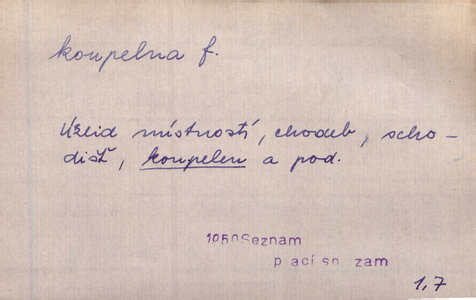 koupelna f.
Úklid místností, chodeb, scho-
dišť, koupelen a pod.
1950Seznam
p ací sp zam
1,7